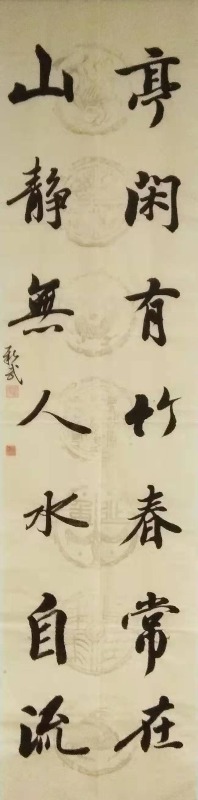 亭闲有竹春常在
山静無人水自流